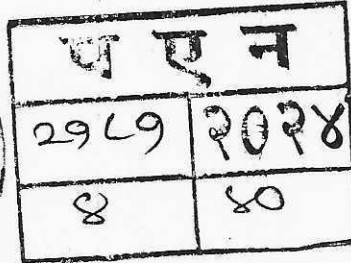 प ए न
२१८१ २०२४
४ ४०